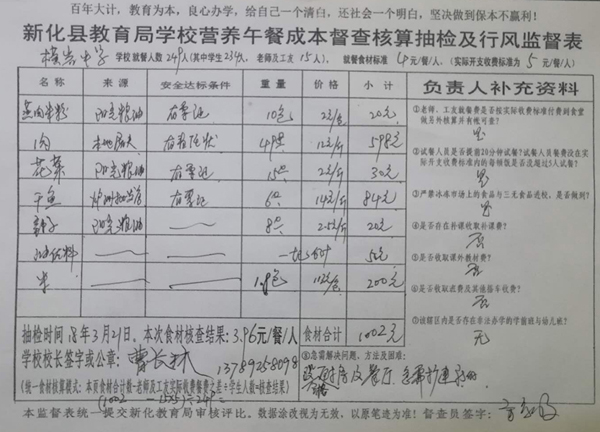 百年大计，教育为本，良心办学，给自己一个清白，还社会一个明白，坚决做到保本不赢利！
新化县教育局学校营养午餐成本督查核算抽检及行风监督表
中学 学校就餐人数249人(其中学生234人，老师及工友15人)，就餐食材标准4元/餐/人，(实际开支收费标准为5元/餐/人)
名称 来源 安全达标条件 重量 价格 小计 负责人补充资料
蒸肉米粉 阳光粮油 有票证 10包 2元/包 20元
肉 本地屠夫 12元/斤 598元
花菜 阳光粮油 有票证 15斤 2元/斤 30元
干鱼 有票证 6斤 14元/斤 84元
阳光粮油 8斤 2.5元/斤 20元
油佐料 50元
米 200元
①老师、工友就餐费是否按实际收费标准付费到食堂
做另外核算并有账可查？
是
②试餐人员是否提前20分钟试餐？试餐人员餐费没在实
际开支收费标准内的每顿饭是否没超过5人试餐？
是
③严禁冰冻市场上的食品与三无食品进校，是否做到？
是
④是否存在补课收取补课费？
否
⑤是否收取课外教材费？
否
⑥是否收取班费及其他搭车收费？
否
⑦该辖区内是否存在非法办学的学前班与幼儿班？
无
抽检时间18年3月21日。本次食材核查结果：3.96元/餐/人 食材合计 1002元
学校校长签字或公章：曹长林 13789258098
⑧急需解决问题、方法及困难：
(统一食材核算模式：本页食材合计数-老师及工友实际收费餐费之差÷学生人数=核查结果)
本监督表统一提交新化教育局审核评比。数据涂改视为无效，以原笔迹为准！督查员签字：